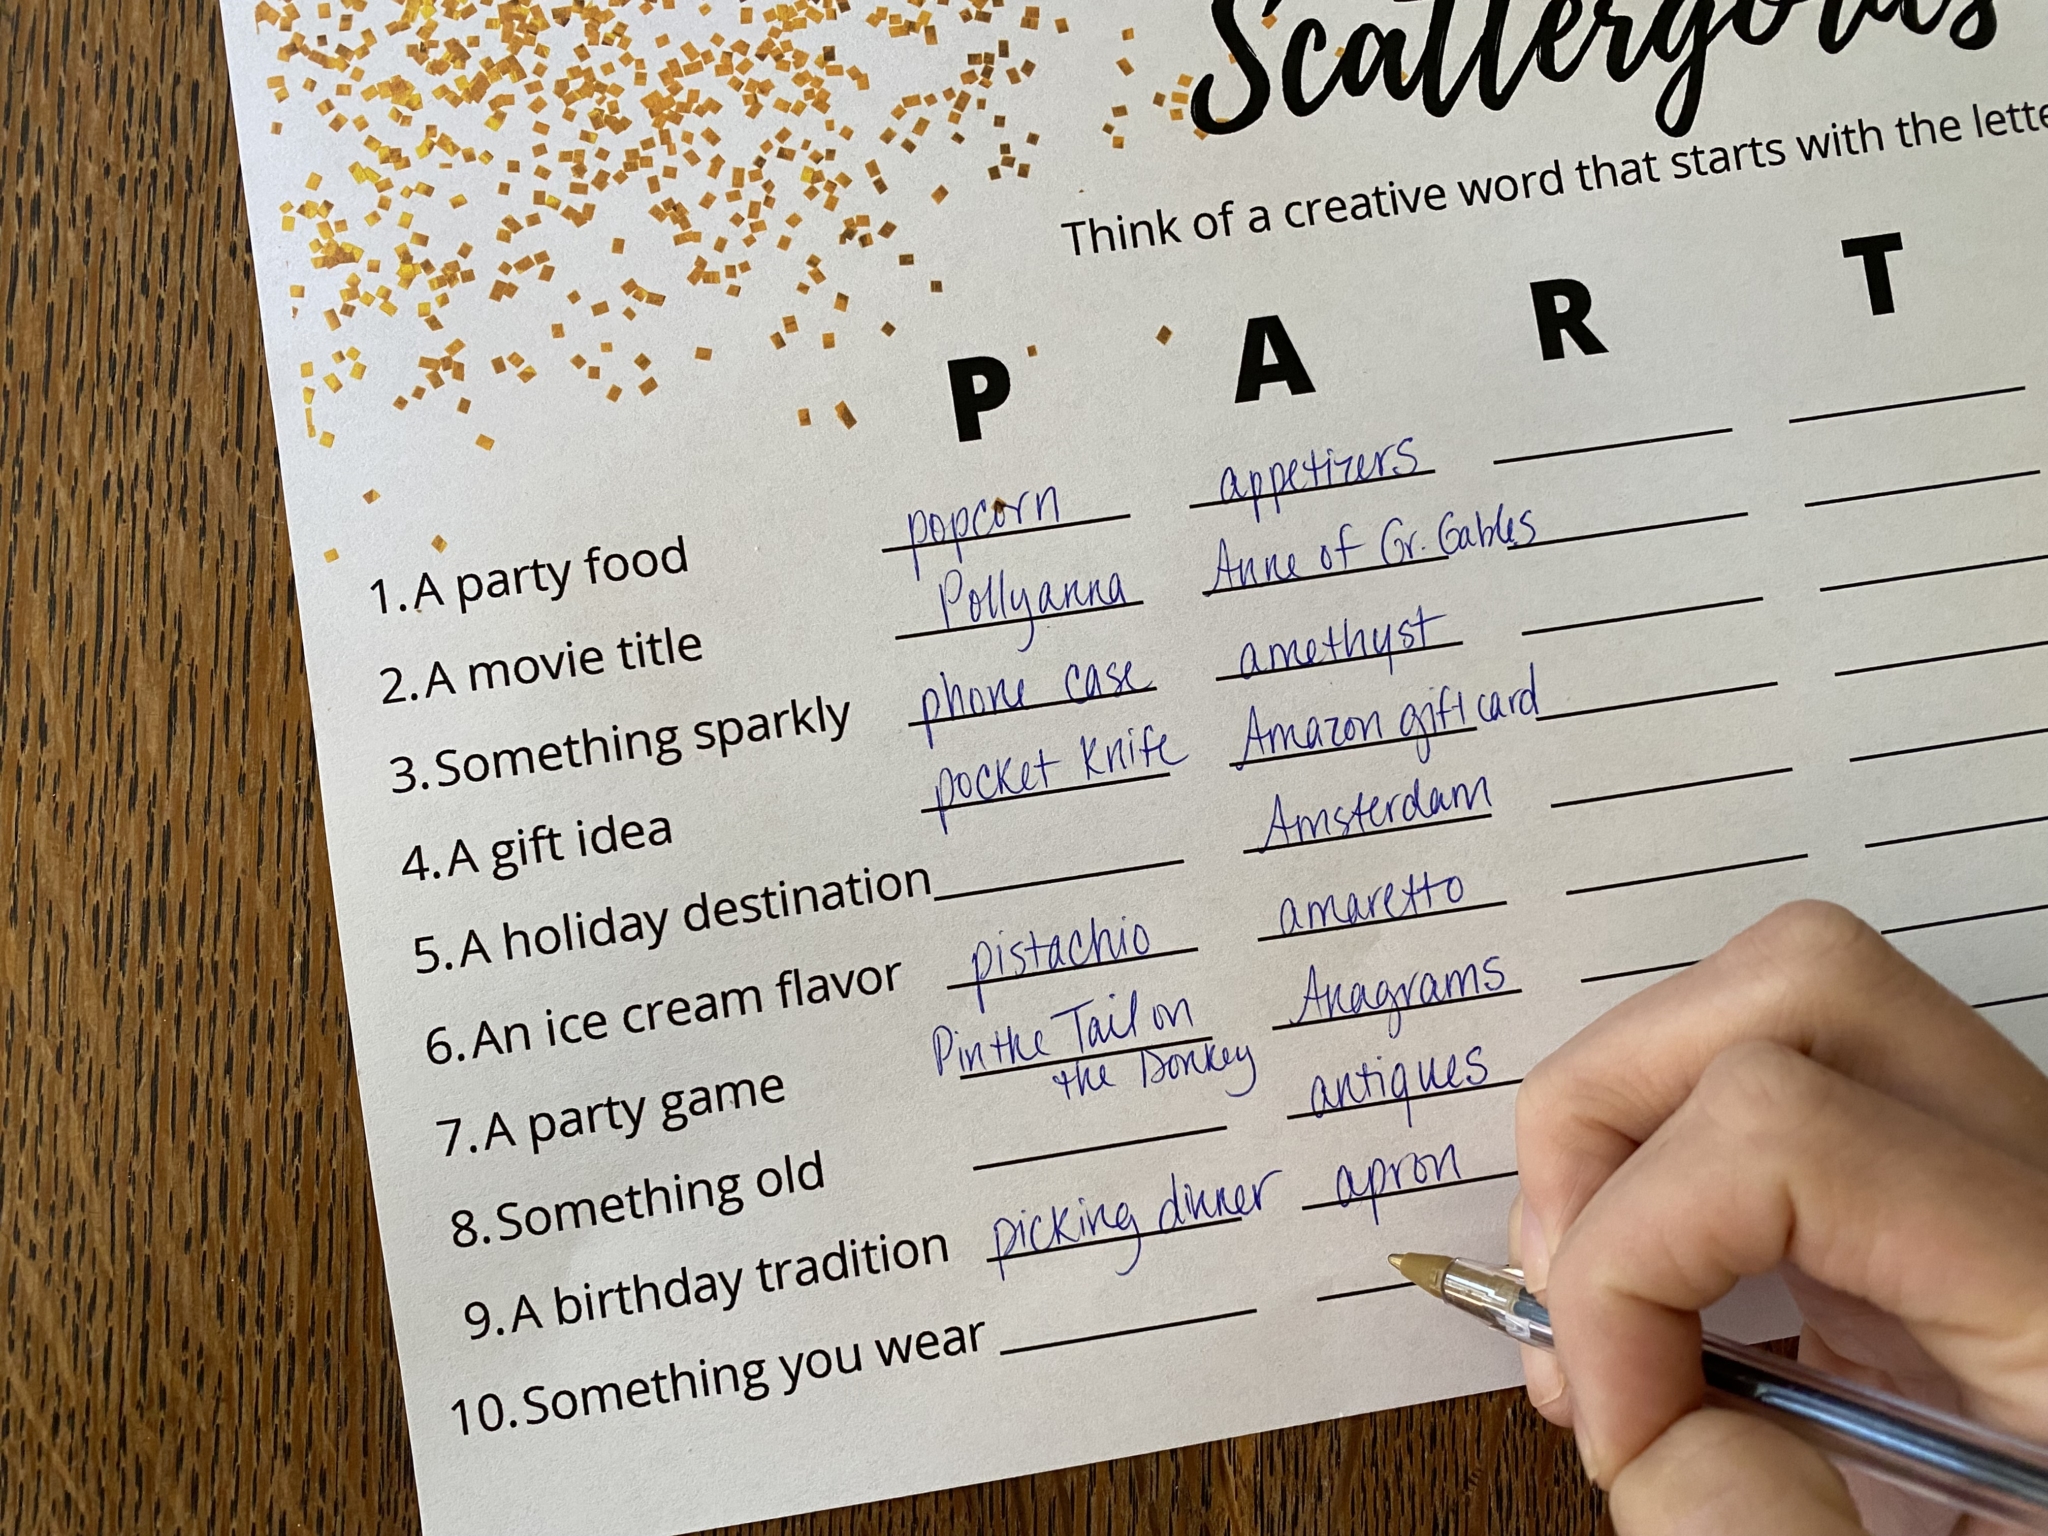 Think of a creative word that starts with the
P A R T
1. A party food popcorn appetizers
2. A movie title Pollyanna Anne of Gr. Gables
3. Something sparkly phone case amethyst
4. A gift idea pocket knife Amazon gift card
5. A holiday destination Amsterdam
6. An ice cream flavor pistachio amaretto
7. A party game Pin the Tail on Anagrams
the Donkey
8. Something old antiques
9. A birthday tradition picking dinner apron
10. Something you wear